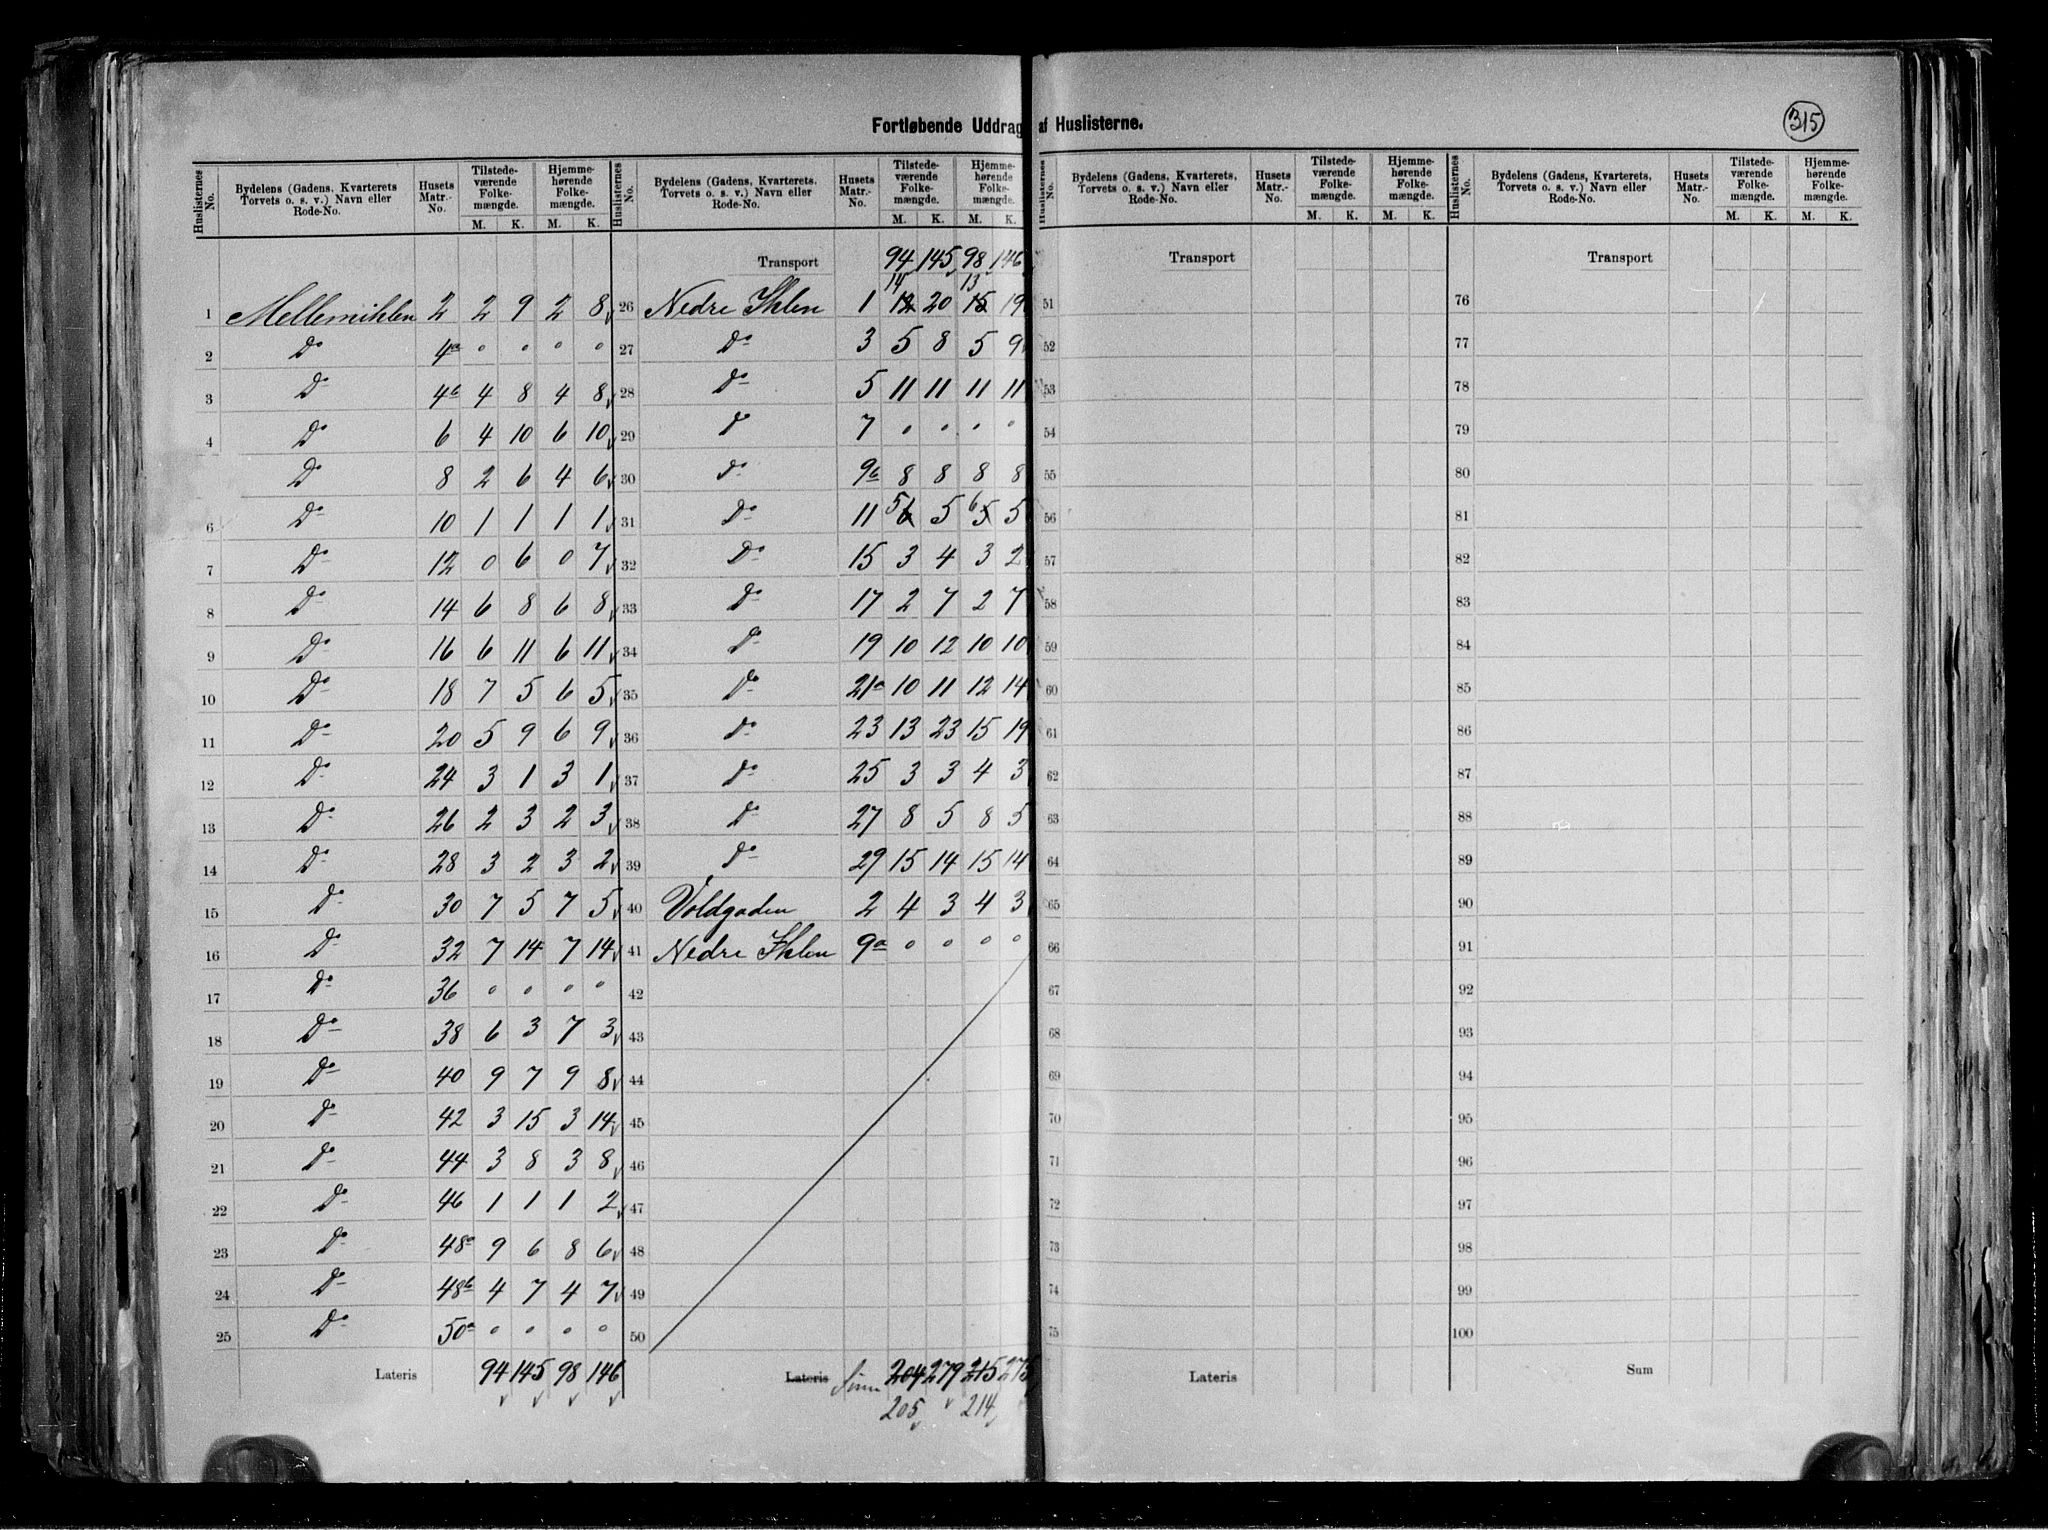 Fortløbende Uddrag af Huslisterne.
315
Huslisternes No. Bydelens (Gadens, Kvarterets Torvets o. s. v.) Navn eller Rode-No. Husets Matr.-No. Tilstedeværende Folkemængde. M. K. Hjemmehørende Folkemængde. M. K.
1 Mellemihlen 2 2 9 2 8
2 Do 4a " " " "
3 Do 4b 4 8 4 8
4 Do 6 4 10 6 10
Do 8 2 6 4 6
6 Do 10 1 1 1 1
7 Do 12 0 6 0 7
8 Do 14 6 8 6 8
9 Do 16 6 11 6 11
10 Do 18 7 5 6 5
11 Do 20 5 9 6 9
12 Do 24 3 1 3 1
13 Do 26 2 3 2 3
14 Do 28 3 2 3 2
15 Do 30 7 5 7 5
16 Do 32 7 14 7 14
17 Do 36 " " " "
18 Do 38 6 3 7 3
19 Do 40 9 7 9 8
20 Do 42 3 15 3 14
21 Do 44 3 8 3 8
22 Do 46 1 1 1 2
23 Do 48a 9 6 8 6
24 Do 48b 4 7 4 7
25 Do 50a " " " "
Lateris 94 145 98 146
Huslisternes No. Bydelens (Gadens, Kvarterets, Torvets o. s. v.) Navn eller Rode-No. Husets Matr.-No. Tilstedeværende Folkemængde. M. K. Hjemmehørende Folkemængde. M. K.
Transport 94 145 98 146
14 13
26 Nedre Ihlen 1 12 20 15 19
27 Do 3 5 8 5 9
28 Do 5 11 11 11 11
29 Do 7 " " " "
30 Do 9b 8 8 8 8
31 Do 11 5 6 5 6 5 5
32 Do 15 3 4 3 2
33 Do 17 2 7 2 7
34 Do 19 10 12 10 10
35 Do 21a 10 11 12 14
36 Do 23 13 23 15 19
37 Do 25 3 3 4 3
38 Do 27 8 5 8 5
39 Do 29 15 14 15 14
40 Voldgaden 2 4 3 4 3
41 Nedre Ihlen 9a " " " "
42
43
44
45
46
47
48
49
50
Lateris Sum 204 279 215 275
205 214
Huslisternes No. Bydelens (Gadens, Kvarterets, Torvets o. s. v.) Navn eller Rode-No. Husets Matr.-No. Tilstedeværende Folkemængde. M. K. Hjemmehørende Folkemængde. M. K.
Transport
51
52
53
54
55
56
57
58
59
60
61
62
63
64
65
66
67
68
69
70
71
72
73
74
75
Lateris
Huslisternes No. Bydelens (Gadens, Kvarterets, Torvets o. s. v.) Navn eller Rode-No. Husets Matr.-No. Tilstedeværende Folkemængde. M. K. Hjemmehørende Folkemængde. M. K.
Transport
76
77
78
79
80
81
82
83
84
85
86
87
88
89
90
91
92
93
94
95
96
97
98
99
100
Sum